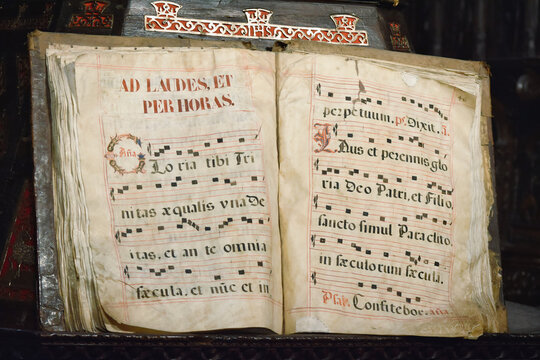 IHS
AD LAUDES, ET
PER HORAS.
Aña
Loria tibi Tri
nitas æqualis vna De
itas, et an te omnia
sæcula, et nũc et in
perpetuum. ps. Dixit. ã.
Laus et perennis gló
ria Deo Patri, et Filio,
sancto simul Paraclito,
in sæculorum sæcula.
Psal. Confitebor. aña.